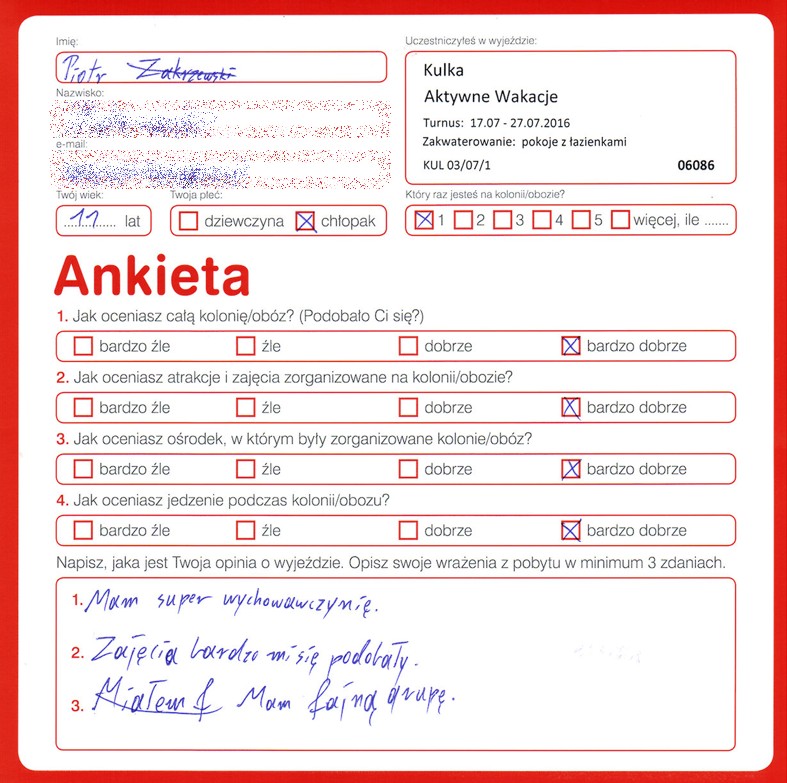 Imię:
Piotr Zakrzewski
Nazwisko:
e-mail:
Twój wiek:
11 lat
Twoja płeć:
dziewczyna chłopak
Uczestniczyłeś w wyjeździe:
Kulka
Aktywne Wakacje
Turnus: 17.07 - 27.07.2016
Zakwaterowanie: pokoje z łazienkami
KUL 03/07/1 06086
Który raz jesteś na kolonii/obozie?
1 2 3 4 5 więcej, ile .......
Ankieta
1. Jak oceniasz całą kolonię/obóz? (Podobało Ci się?)
bardzo źle źle dobrze bardzo dobrze
2. Jak oceniasz atrakcje i zajęcia zorganizowane na kolonii/obozie?
bardzo źle źle dobrze bardzo dobrze
3. Jak oceniasz ośrodek, w którym były zorganizowane kolonie/obóz?
bardzo źle źle dobrze bardzo dobrze
4. Jak oceniasz jedzenie podczas kolonii/obozu?
bardzo źle źle dobrze bardzo dobrze
Napisz, jaka jest Twoja opinia o wyjeździe. Opisz swoje wrażenia z pobytu w minimum 3 zdaniach.
1. Mam super wychowawczynię.
2. Zajęcia bardzo mi się podobały.
3. Miałem f Mam fajną grupę.